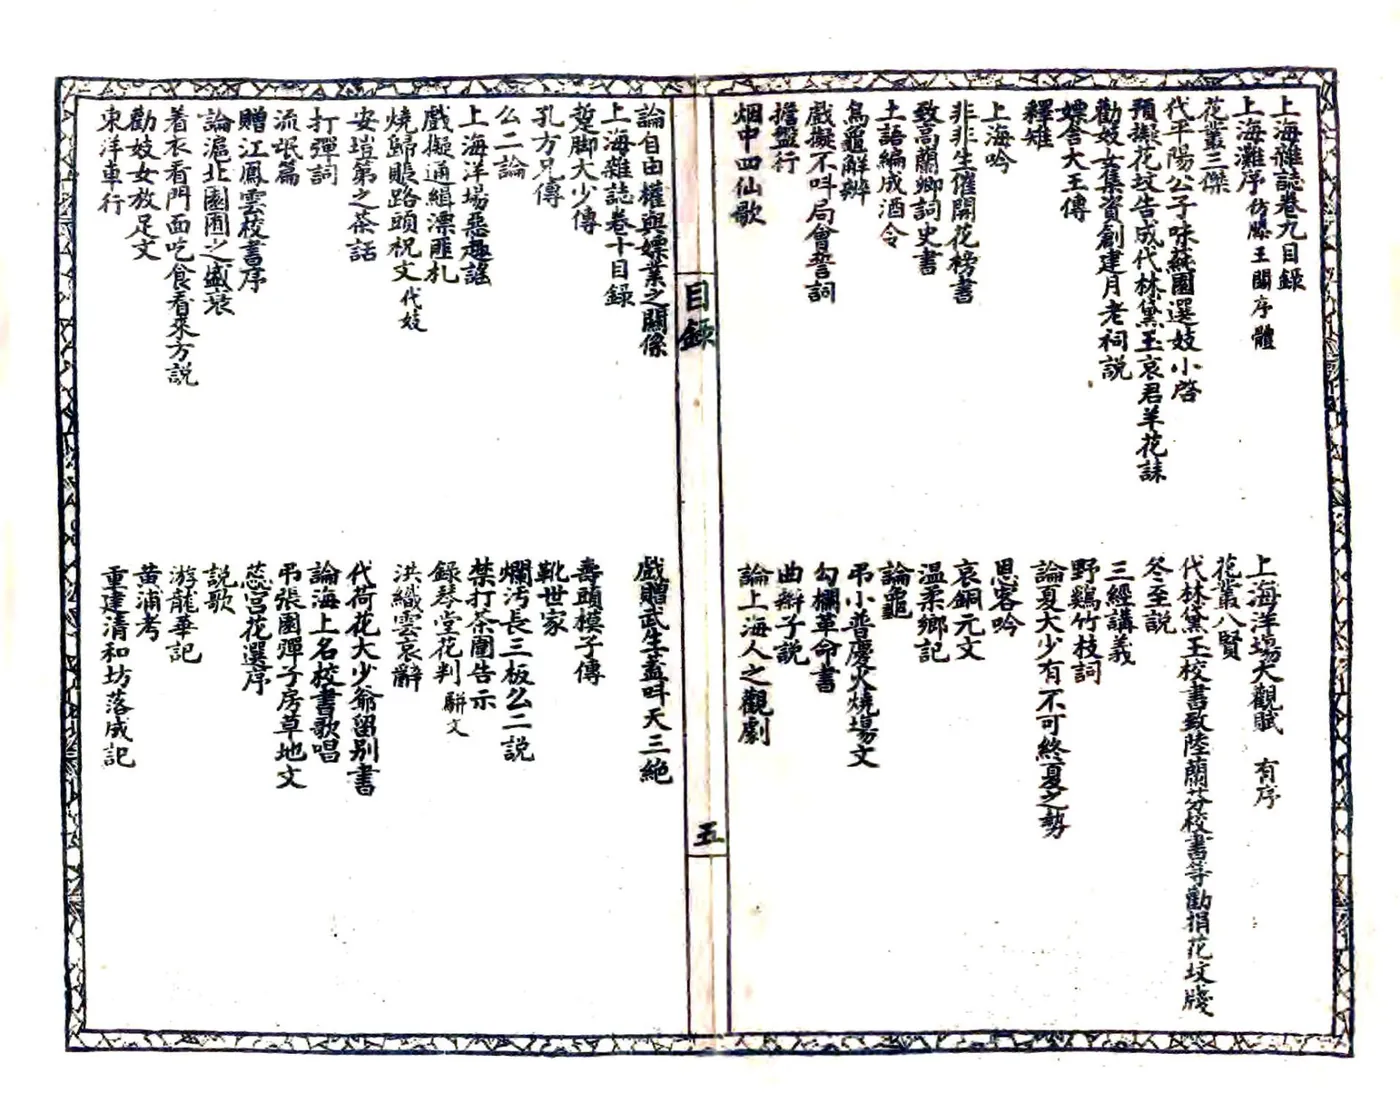 上海雜誌卷九目錄
上海灘序 仿滕王閣序體
上海洋塲大觀賦 有序
花叢三傑
花叢八賢
代平陽公子味蒓園選妓小啓
代林黛玉校書致陸蘭芬校書等勸捐花坟牋
預擬花坟告成代林黛玉哀君羊花誄
冬至説
勸妓女集資創建月老祠説
三經講義
嫖舍大王傳
野鷄竹枝詞
釋雉
論夏大少有不可終夏之勢
上海吟
思窑吟
非非生催開花榜書
哀銅元文
致高蘭卿詞史書
温柔鄉記
土語編成酒令
論龜
烏龜解辨
吊小普慶火燒塲文
戲擬不呌局會誓詞
勾欄革命書
擔盤行
曲辮子説
烟中四仙歌
論上海人之觀劇
目錄
五
論自由權與嫖業之關係
戲贈武生蓋呌天三絶
上海雜誌卷十目錄
蹩脚大少傳
壽頭模子傳
孔方兄傳
靴世家
么二論
爛汚長三板么二説
上海洋場惡趣謠
禁打茶圍告示
戲擬通緝漂匪札
錄琴堂花判 駢文
燒歸賬路頭祝文 代妓
洪纖雲哀辭
安塏第之茶話
代荷花大少爺留别書
打彈詞
論海上名校書歌唱
流氓篇
吊張園彈子房草地文
贈江鳳雲校書序
蕊宮花選序
論滬北園囿之盛衰
説歌
着衣看門面吃食看來方説
游龍華記
勸妓女放足文
黄浦考
東洋車行
重建清和坊落成記